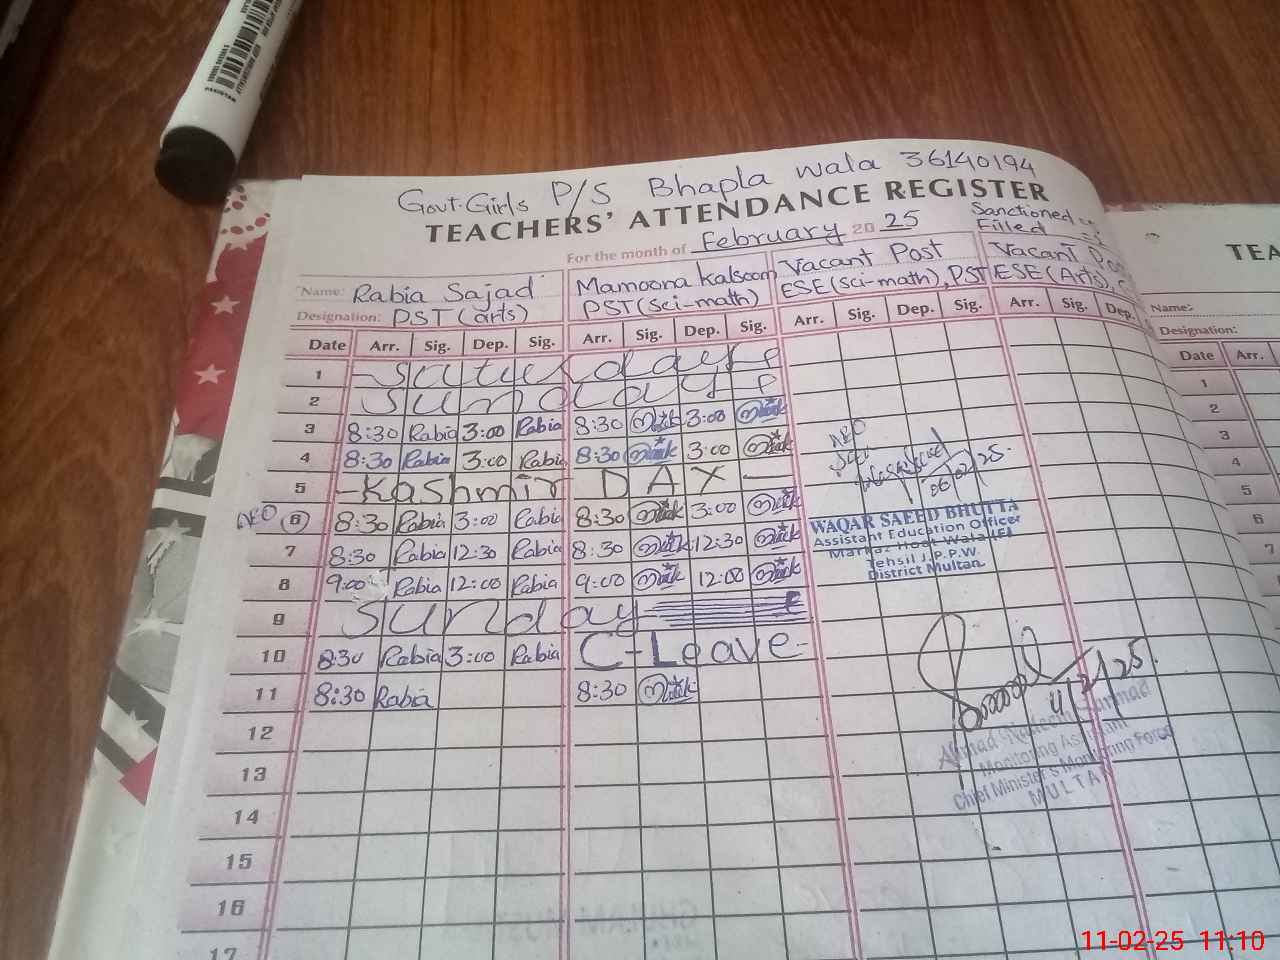 Govt. Girls P/S Bhapla wala 36140194
TEACHERS' ATTENDANCE REGISTER
For the month of February 2025
Sanctioned
Filled
Name: Rabia Sajad Mamoona Kalsoom Vacant Post Vacant
Designation: PST (arts) PST (sci-math) ESE (sci-math), PST ESE (Arts),
Date Arr. Sig. Dep. Sig. Arr. Sig. Dep. Sig. Arr. Sig. Dep. Sig. Arr. Sig. Dep.
1
2 Sunday
3 8:30 Rabia 3:00 Rabia 8:30 3:00
4 8:30 Rabia 3:00 Rabia 8:30 3:00
5 Kashmir DAY
AEO 6 8:30 Rabia 3:00 Rabia 8:30 3:00
7 8:30 Rabia 12:30 Rabia 8:30 12:30
8 9:00 Rabia 12:00 Rabia 9:00 12:00
9 Sunday
10 8:30 Rabia 3:00 Rabia C-Leave
11 8:30 Rabia 8:30
12
13
14
15
16
17
AEO
06/02/25.
WAQAR SAEED BHUTTA
Assistant Education Officer
Tehsil J.P.P.W.
District Multan
11/2/25.
Ahmad Nadeem
Monitoring Assistant
Chief Minister's Monitoring Force
MULTAN
TEA
Name:
Designation:
Date Arr.
1
2
3
4
5
6
7
PAKISTAN
11-02-25 11:10